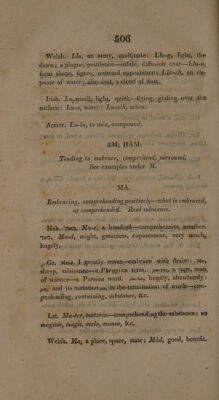 506
Welsh. Llu, an army, multitude: Llu-g, light, the
dawn; a plague, pestilence—subtle, diffusion over—Llu-n,
form shape, figure, outward appearance: Llu-ch, an ex-
panse of water; also dust, a cloud of dust.
Irish. Lu, small, light, quick—flying, gliding over the
surface: Lu-a, water: Lu-ath, ashes.
Armor. Lu-ia, to mix, compound.
AM, HAM.
Tending to embrace, comprehend, surround.
See examples under M.
MA.
Embracing, comprehending positively—what is embraced,
or comprehended. Real substance.
Heb. Ma-e, a hundred—comprehensive number.
Ma-d, might, greatness, copiousness; very much,
hugely.
Gr. I greatly covet—embrace with desire: Ma,
sheep, substance—a Phrygian term. a sage, man
of science—a Persian word. hugely, abundantly:
and its mutation in the termination of words—com-
prehending, containing, substance, &c.
Lat. Ma-ter, materia—comprehending the substance: so
magnus, magis, malo, manus, &c.
Welsh. Ma, a place, space, state: Mâd, good, benefit,